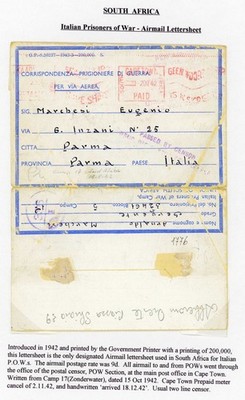 SOUTH AFRICA
Italian Prisoners of War - Airmail Lettersheet
CORRISPONDENZA PRIGIONIERE DI GUERRA
PER VIA AEREA
PAID
SIG. Marchesi Eugenio
VIA G. Inzani N° 25
CITTÀ Parma
PROVINCIA Parma PAESE Italia
1776
Introduced in 1942 and printed by the Government Printer with a printing of 200,000,
this lettersheet is the only designated Airmail lettersheet used in South Africa for Italian
P.O.W.s. The airmail postage rate was 9d. All airmail to and from POWs went through
the office of the postal censor, POW Section, at the main post office in Cape Town.
Written from Camp 17(Zonderwater), dated 15 Oct 1942. Cape Town Prepaid meter
cancel of 2.11.42, and handwritten 'arrived 18.12.42'. Usual two line censor.